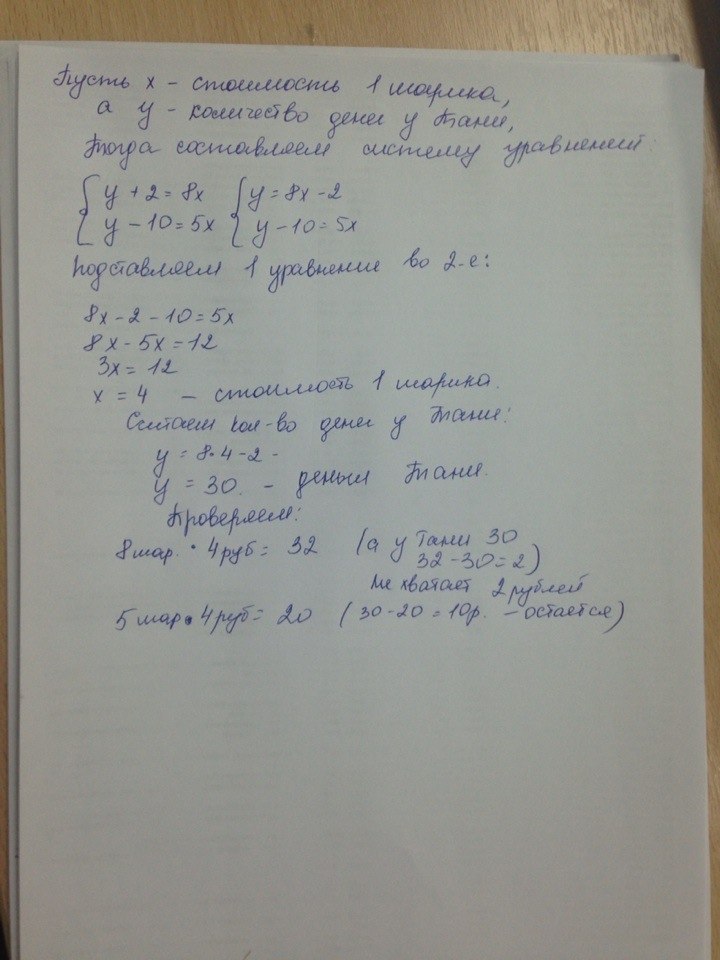 Пусть x – стоимость 1 шарика,
а y – количество денег у Тани,
Тогда составляем систему уравнений:
{ y + 2 = 8x { y = 8x - 2
{ y - 10 = 5x { y - 10 = 5x
Подставляем 1 уравнение во 2-е:
8x - 2 - 10 = 5x
8x - 5x = 12
3x = 12
x = 4 – стоимость 1 шарика.
Считаем кол-во денег у Тани:
y = 8·4 - 2 -
y = 30. – деньги Тани.
Проверяем:
8 шар. · 4 руб = 32 (а у Тани 30
32 - 30 = 2)
Не хватает 2 рублей
5 шар · 4 руб = 20 (30 - 20 = 10р. – остаётся)